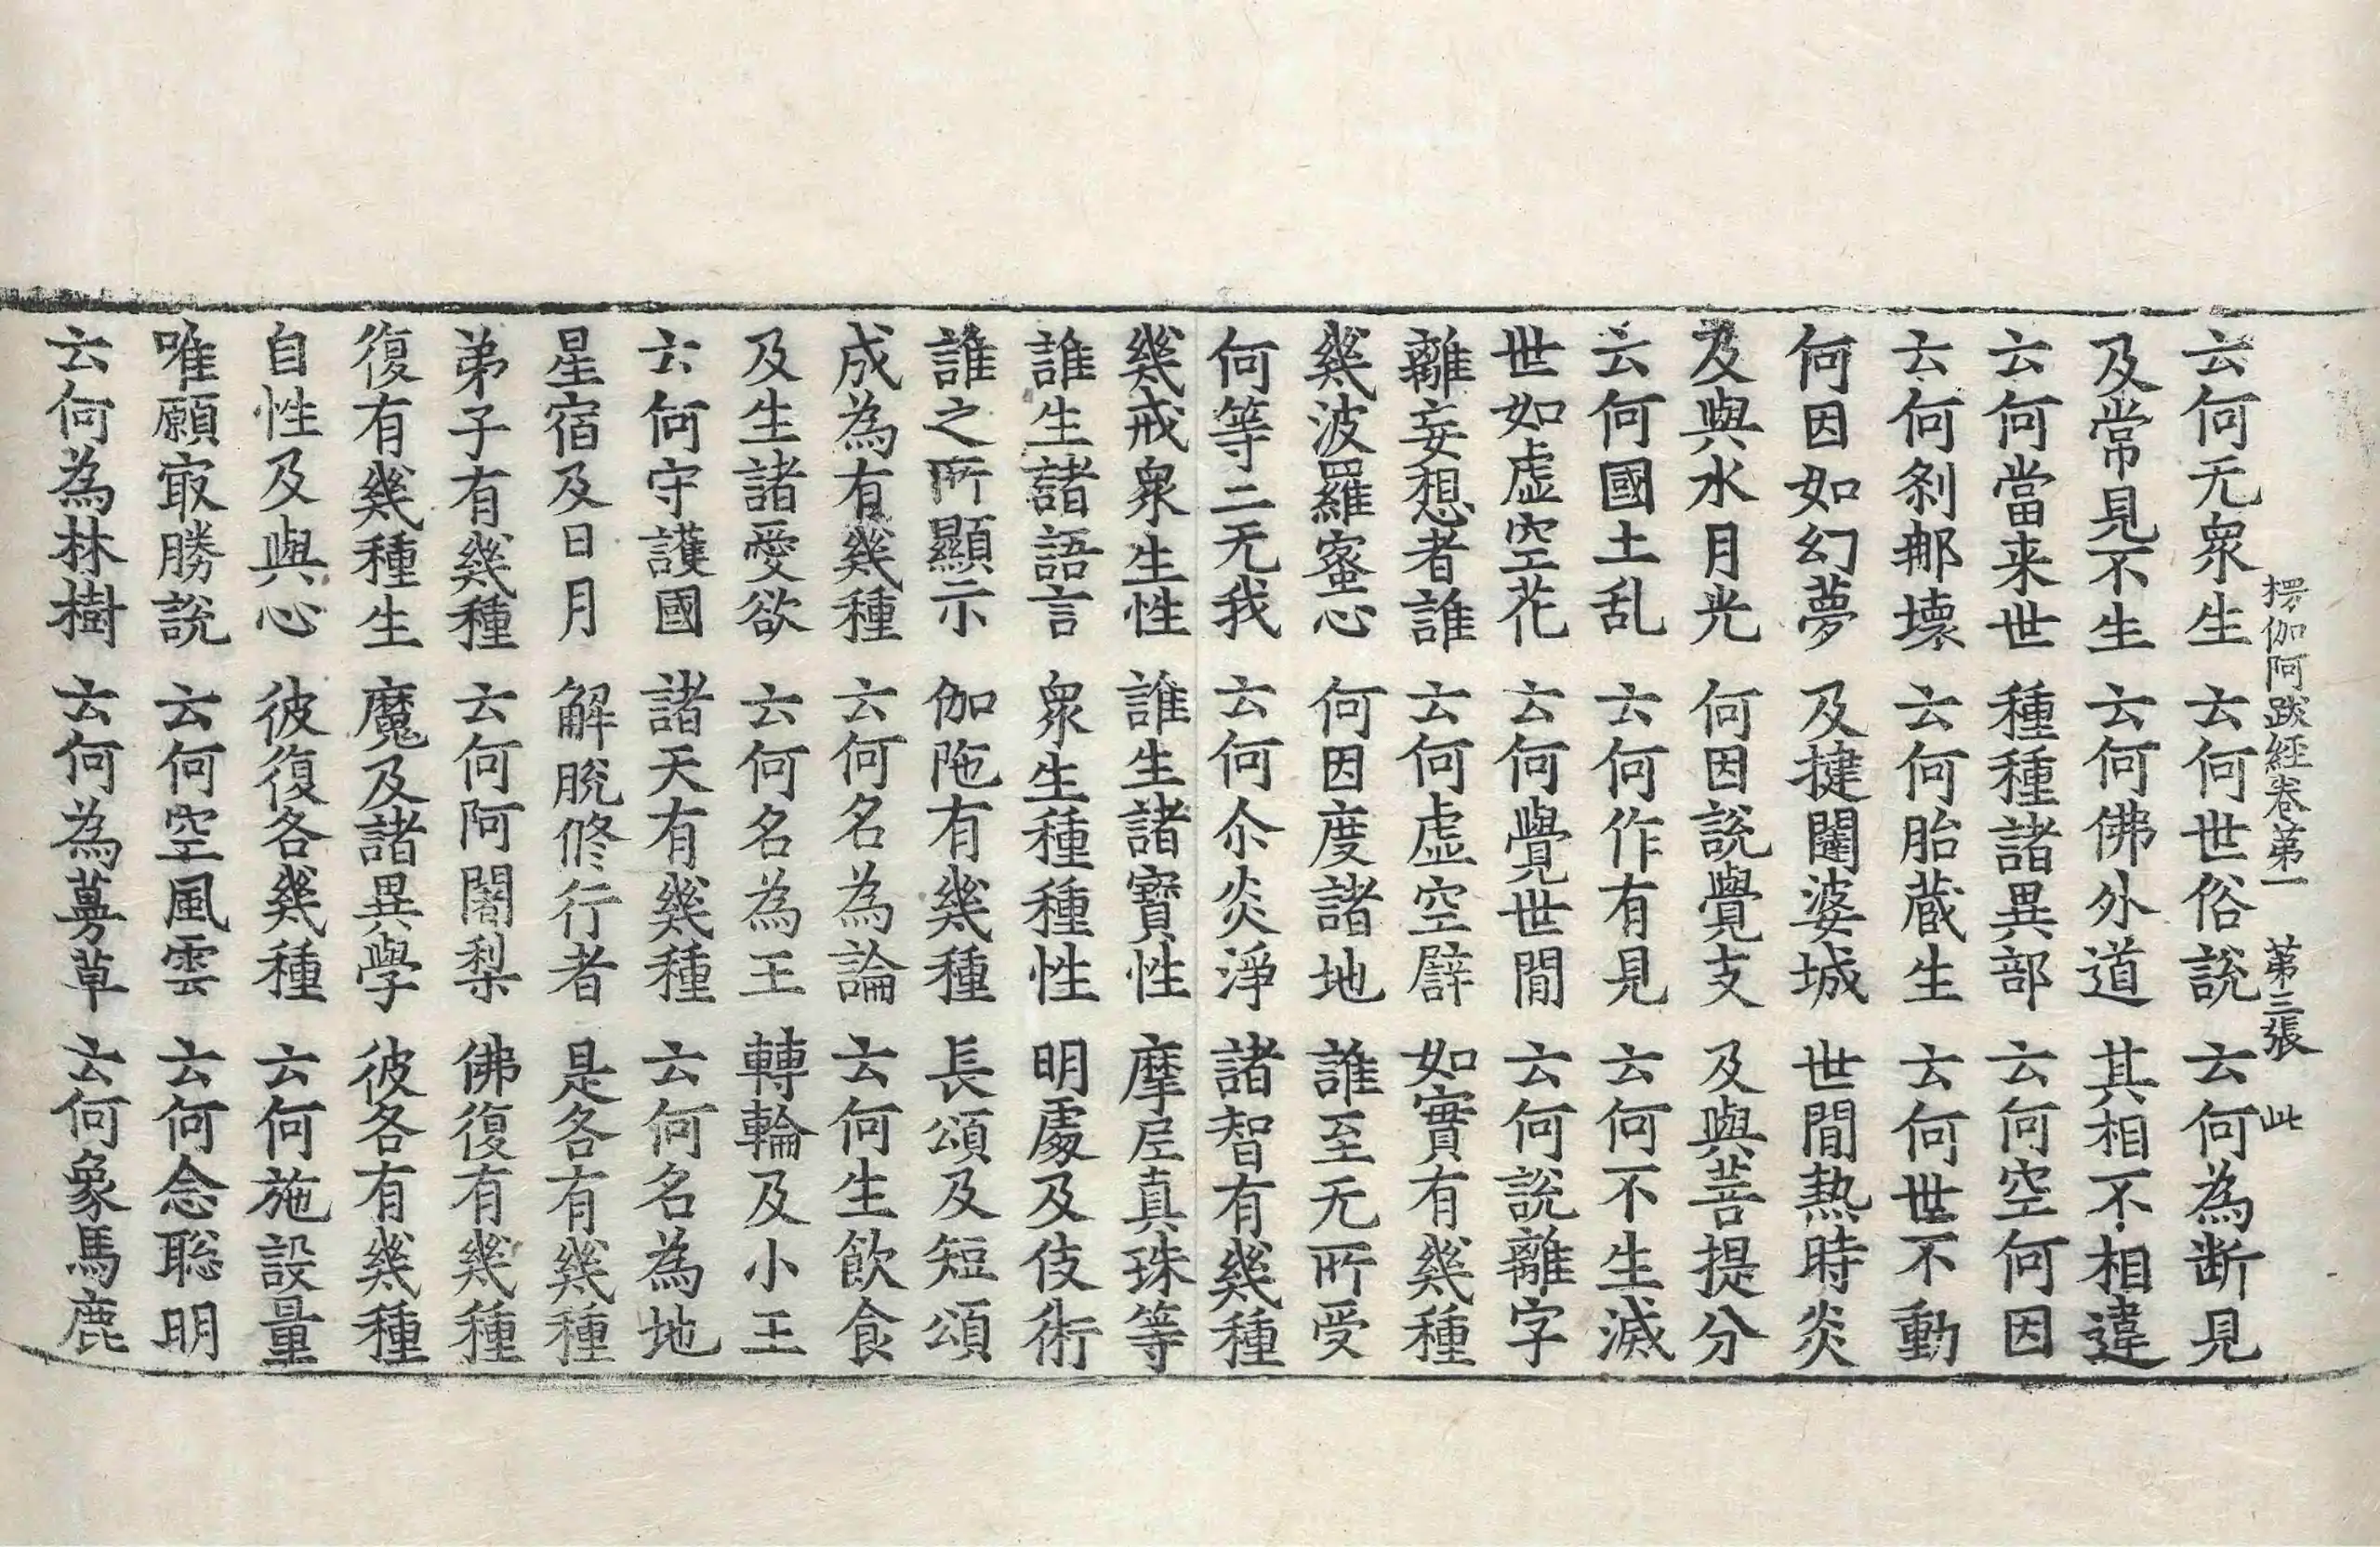 楞伽阿跋経卷第一 第三張 此
云何无衆生 云何世俗說 云何為断見
及常見不生 云何佛外道 其相不相違
云何當来世 種種諸異部 云何空何因
云何剎那壊 云何胎蔵生 云何世不動
何因如幻夢 及揵闥婆城 世間熱時炎
及與水月光 何因說覺支 及與菩提分
云何國土乱 云何作有見 云何不生滅
世如虛空花 云何覺世間 云何說離字
離妄想者誰 云何虛空譬 如實有幾種
幾波羅蜜心 何因度諸地 誰至无所受
何等二无我 云何尒炎淨 諸智有幾種
幾戒衆生性 誰生諸寶性 摩尼真珠等
誰生諸語言 衆生種種性 明處及伎術
誰之所顯示 伽陁有幾種 長頌及短頌
成為有幾種 云何名為論 云何生飲食
及生諸愛欲 云何名為王 轉輪及小王
云何守護國 諸天有幾種 云何名為地
星宿及日月 解脫修行者 是各有幾種
弟子有幾種 云何阿闍梨 佛復有幾種
復有幾種生 魔及諸異學 彼各有幾種
自性及與心 彼復各幾種 云何施設量
唯願㝡勝說 云何空風雲 云何念聦明
云何為林樹 云何為蔓草 云何象馬鹿